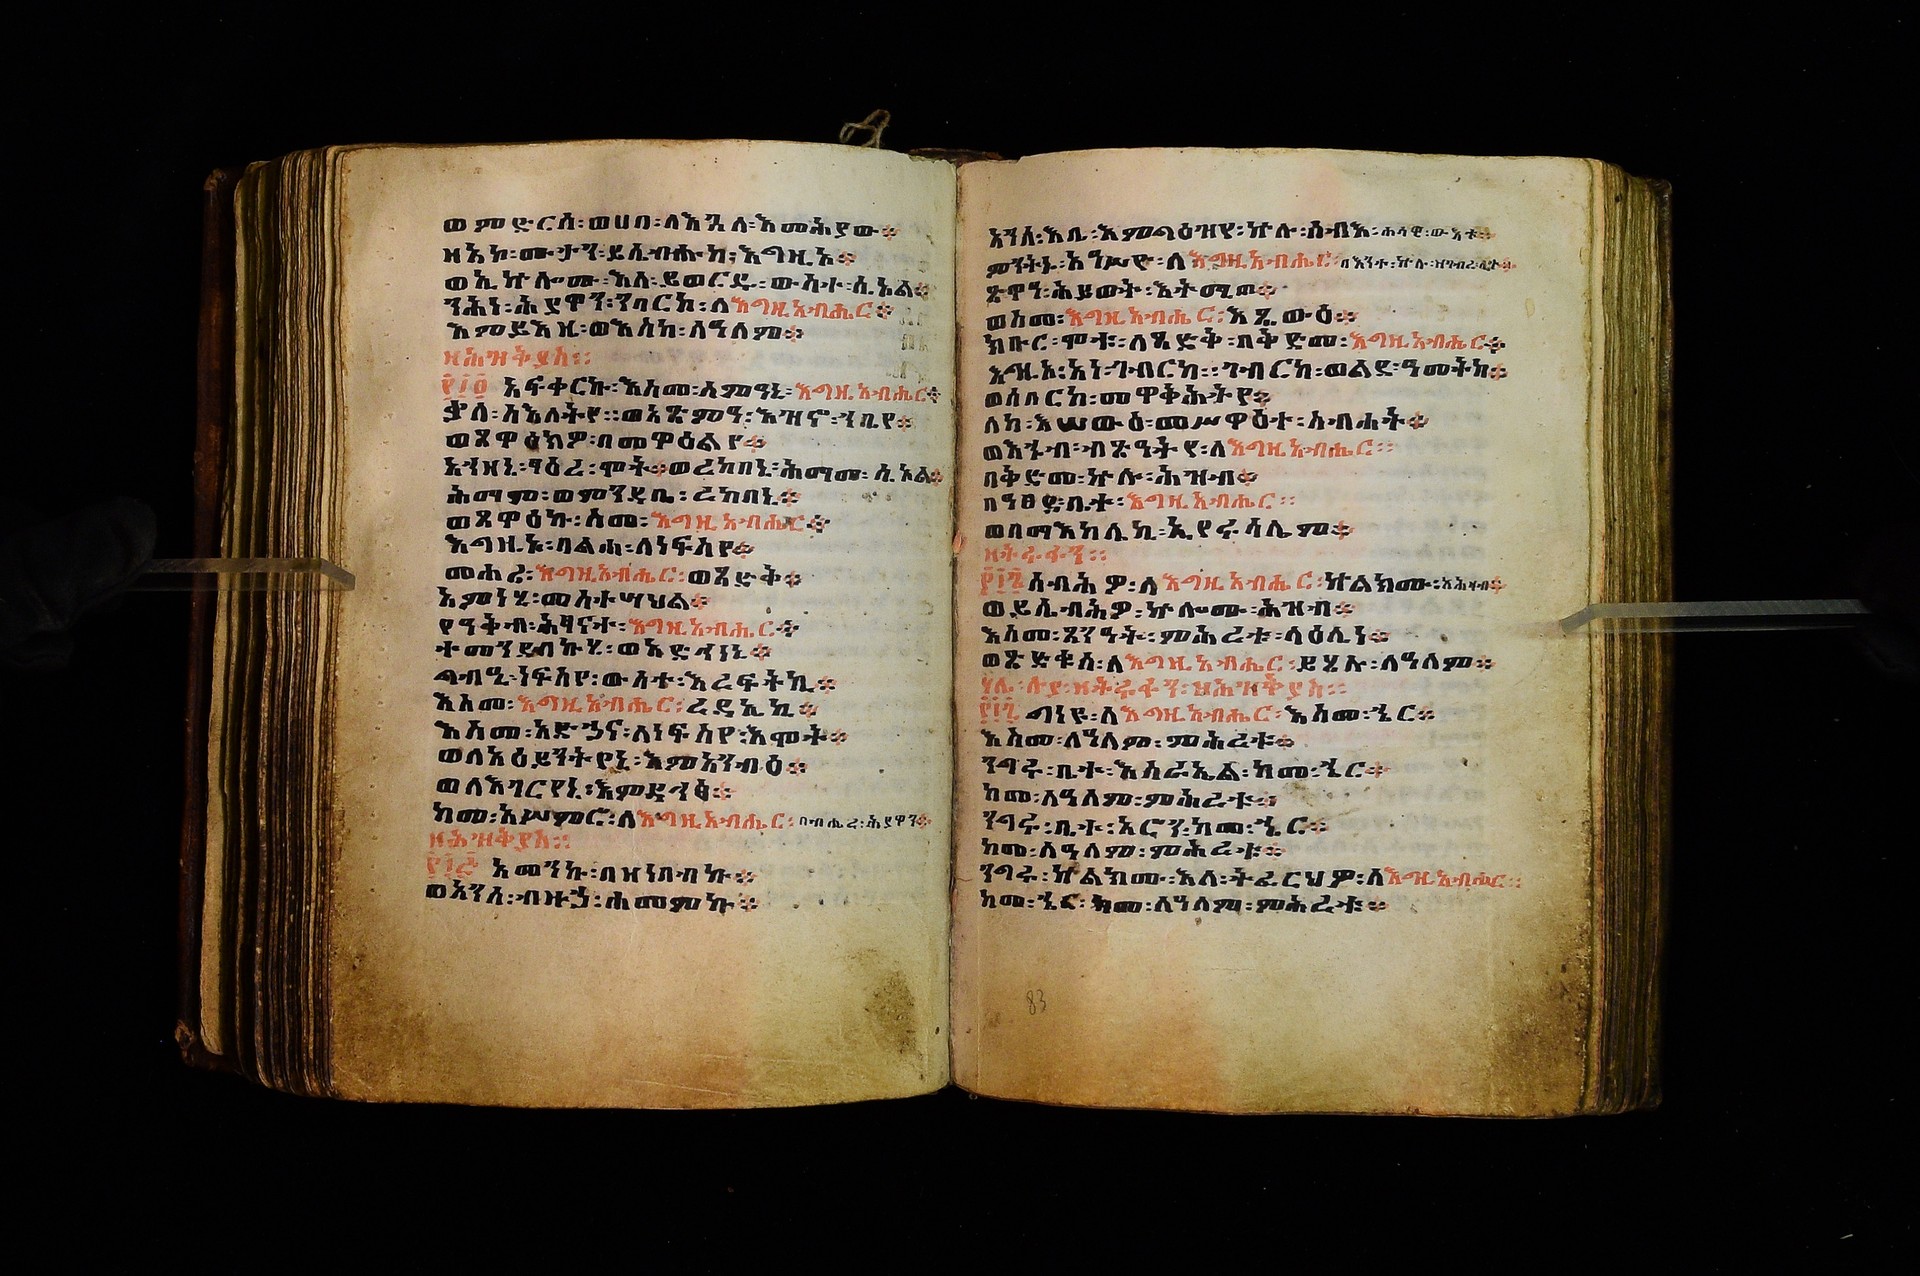 ወምድርሰ፡ወሀበ፡ለእጓለ፡እመሕያው፨
ዘአኮ፡ሙታን፡ይሴብሑከ፡እግዚኦ፨
ወኢኵሎሙ፡እለ፡ይወርዱ፡ውስተ፡ሲኦል፨
ንሕነ፡ሕያዋን፡ንባርኮ፡ለእግዚአብሔር፨
እምይእዜ፡ወእስከ፡ለዓለም፨
ዘሕዝቅያስ።
፻፲፬ አፍቀርኩ፡እስመ፡ሰምዓኒ፡እግዚአብሔር፨
ቃለ፡ስእለትየ።ወአጽምዓ፡እዝኖ፡ኀቤየ፨
ወጸዋዕክዎ፡በመዋዕልየ፨
አኀዘኒ፡ፃዕረ፡ሞት፨ወረከበኒ፡ሕማመ፡ሲኦል፨
ሕማም፡ወምንዳቤ፡ረከበኒ፨
ወጸዋዕኩ፡ስመ፡እግዚአብሔር፨
እግዚኦ፡ባልሐ፡ለነፍስየ፨
መሐሪ፡እግዚአብሔር፡ወጻድቅ፨
መስተሣህል፨
የዓቅብ፡ሕፃናተ፡እግዚአብሔር፨
ተመንደብኩሂ፡ወአድኀነኒ፨
ግብኢ፡ነፍስየ፡ውስተ፡እረፍትኪ፨
እስመ፡እግዚአብሔር፡ረድአኪ፨
እስመ፡አድኃና፡ለነፍስየ፡እሞት፨
ወለአዕይንትየኒ፡እምአንብዕ፨
ወለእገርየኒ፡እምዳኅፅ፨
ከመ፡አሥምሮ፡ለእግዚአብሔር፡በብሔረ፡ሕያዋን፨
ዘሕዝቅያስ።
፻፲፭ አመንኩ፡በዘነበብኩ፨
ወአንሰ፡ብዙኃ፡ሐመምኩ፨
አንሰ፡እቤ፡እምግዕዝየ፡ኵሉ፡ሰብእ፡ሐሳዊ፡ውእቱ፨
ምንትኑ፡አዓሥዮ፡ለእግዚአብሔር፡በእንተ፡ኵሉ፡ዘገብረ፡ሊተ፨
ጽዋዓ፡ሕይወት፡እትሜጦ፨
ወስመ፡እግዚአብሔር፡እጼውዕ፨
ክቡር፡ሞቱ፡ለጻድቅ፡በቅድመ፡እግዚአብሔር፨
እግዚኦ፡አነ፡ገብርከ፡ገብርከ፡ወልደ፡ዓመትከ፨
ወሰበርከ፡መዋቅሕትየ፨
ለከ፡እሠውዕ፡መሥዋዕተ፡ስብሐት፨
ወእሁብ፡ብጽዓትየ፡ለእግዚአብሔር።
በቅድመ፡ኵሉ፡ሕዝብ፨
በዓፀደ፡ቤተ፡እግዚአብሔር።
ወበማእከሌኪ፡ኢየሩሳሌም፨
ዘትሩፋን።
፻፲፮ ሰብሕዎ፡ለእግዚአብሔር፡ኵልክሙ፡አሕዛብ፨
ወይሴብሕዎ፡ኵሎሙ፡ሕዝብ፨
እስመ፡ጸንዓት፡ምሕረቱ፡ላዕሌነ፨
ወጽድቁሰ፡ለእግዚአብሔር፡ይሄሉ፡ለዓለም፨
ሃሌ፡ሉያ፡ዘትሩፋን፡ህሕዝቅያስ።
፻፲፯ ግነዩ፡ለእግዚአብሔር፡እስመ፡ኄር፨
እስመ፡ለዓለም፡ምሕረቱ፨
ንግሩ፡ቤተ፡እስራኤል፡ከመ፡ኄር፨
ከመ፡ለዓለም፡ምሕረቱ፨
ንግሩ፡ቤተ፡አሮን፡ከመ፡ኄር፨
ከመ፡ለዓለም፡ምሕረቱ፨
ንግሩ፡ኵልክሙ፡እለ፡ትፈርህዎ፡ለእግዚአብሔር።
ከመ፡ኄር፡ከመ፡ለዓለም፡ምሕረቱ፨
83